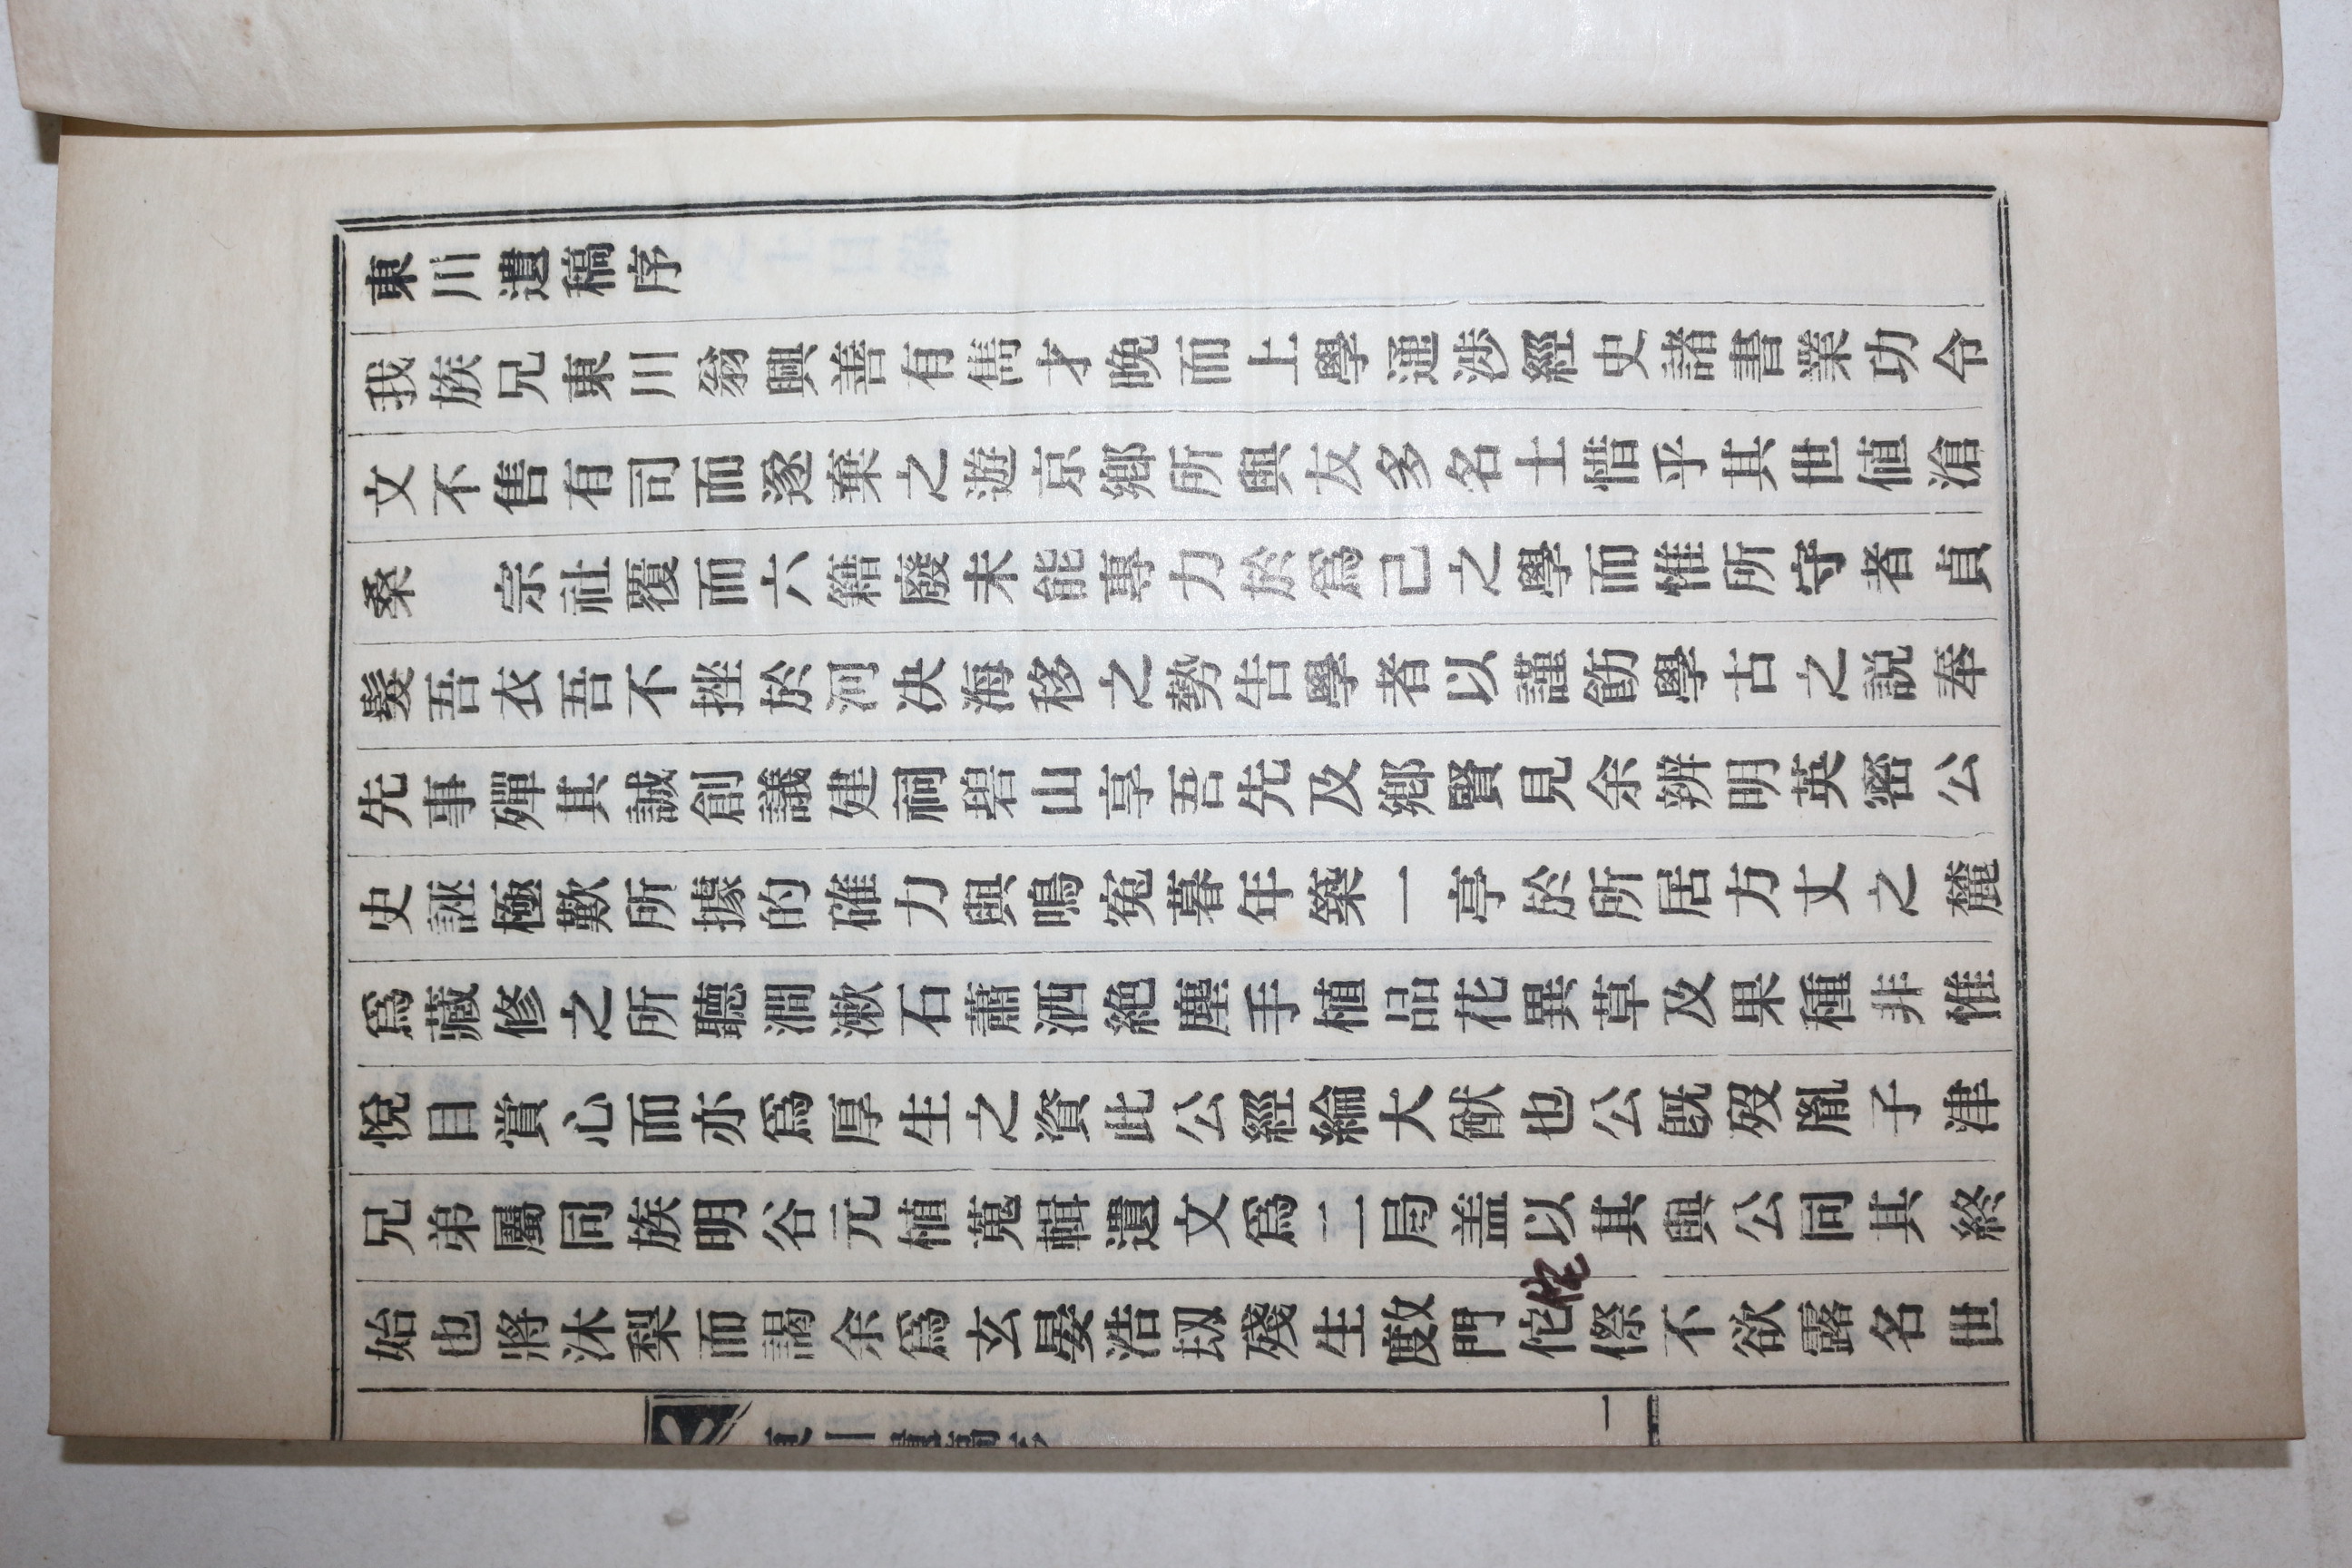 東川遺稿序
我族兄東川翁興善有雋才晩而上學通涉經史諸書業功令
文不售有司而遂棄之遊京鄕所與友多名士惜乎其世値滄
桑　宗社覆而六籍廢未能專力於爲己之學而惟所守者貞
髮吾衣吾不挫於河决海移之勢告學者以謹飭學古之説奉
先事殫其誠創議建祠碧山享吾先及鄕賢見余辨明英密公
史誣極歎所據的確力與鳴寃暮年築一亭於所居方丈之麓
爲藏修之所聽澗漱石蕭洒絶塵手植品花異草及果種非惟
悅目賞心而亦爲厚生之資此公經綸大猷也公旣歿胤子津
兄弟屬同族明谷元植蒐輯遺文爲二局盖以其與公同其終
始也將沐梨而謁余爲玄晏浩刼殘生斁門佗傺不欲露名世
侘
一